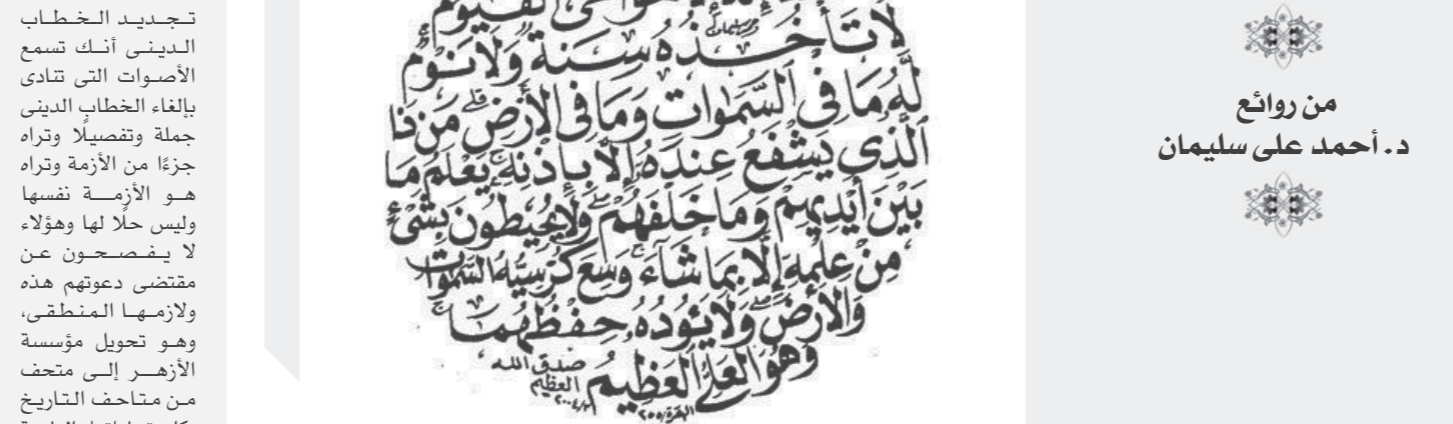 من روائع
د. أحمد على سليمان
لَا تَأْخُذُهُ سِنَةٌ وَلَا نَوْمٌ
لَّهُ مَا فِي السَّمَوَاتِ وَمَا فِي الْأَرْضِ مَن ذَا
الَّذِي يَشْفَعُ عِندَهُ إِلَّا بِإِذْنِهِ يَعْلَمُ مَا
بَيْنَ أَيْدِيهِمْ وَمَا خَلْفَهُمْ وَلَا يُحِيطُونَ بِشَيْءٍ
مِّنْ عِلْمِهِ إِلَّا بِمَا شَاءَ وَسِعَ كُرْسِيُّهُ السَّمَوَاتِ
وَالْأَرْضَ وَلَا يَئُودُهُ حِفْظُهُمَا
وَهُوَ الْعَلِيُّ الْعَظِيمُ
صدق الله
العظيم
البقرة/٢٥٥
تـجـديـد الـخـطـاب
الـديـنـى أنـك تسمع
الأصـوات التى تنادى
بإلغاء الخطاب الدينى
جملة وتفصيلًا وتراه
جزءًا من الأزمة وتراه
هـو الأزمـــة نفسها
وليس حلًا لها وهؤلاء
لا يـفـصـحـون عـن
مقتضى دعوتهم هذه
ولازمـهـا الـمـنـطـقـى،
وهـو تحويل مؤسسة
الأزهـــر إلــى متحف
مـن مـتـاحـف التـاريـخ